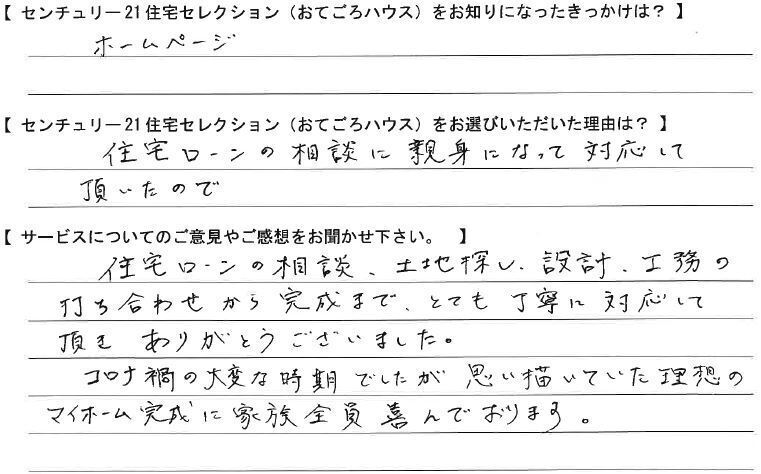 【 センチュリー21住宅セレクション（おてごろハウス）をお知りになったきっかけは？ 】
ホームページ
【 センチュリー21住宅セレクション（おてごろハウス）をお選びいただいた理由は？ 】
住宅ローンの相談に親身になって対応して
頂いたので
【 サービスについてのご意見やご感想をお聞かせ下さい。 】
住宅ローンの相談、土地探し、設計、工務の
打ち合わせから完成まで、とても丁寧に対応して
頂き ありがとうございました。
コロナ禍の大変な時期でしたが 思い描いていた理想の
マイホーム完成に家族全員喜んでおります。